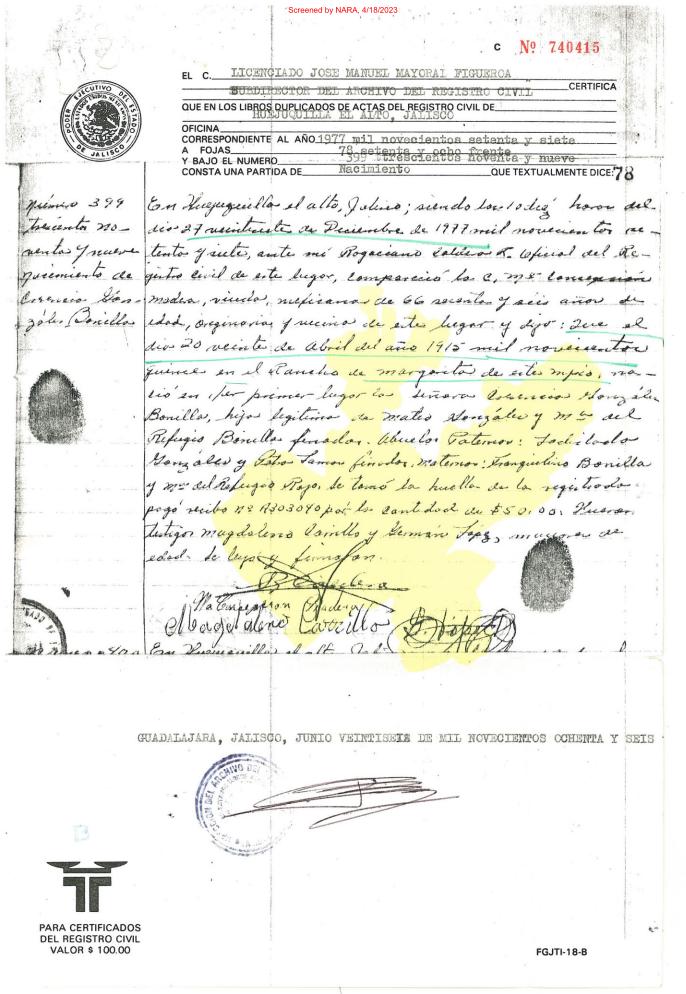 Screened by NARA, 4/18/2023
C Nº 740415
EL C. LICENCIADO JOSE MANUEL MAYORAL FIGUEROA
SUBDIRECTOR DEL ARCHIVO DEL REGISTRO CIVIL CERTIFICA
QUE EN LOS LIBROS DUPLICADOS DE ACTAS DEL REGISTRO CIVIL DE
HUEJUQUILLA EL ALTO, JALISCO
OFICINA
CORRESPONDIENTE AL AÑO 1977 mil novecientos setenta y siete
A FOJAS 78 setenta y ocho frente
Y BAJO EL NUMERO 399 trescientos noventa y nueve
CONSTA UNA PARTIDA DE Nacimiento QUE TEXTUALMENTE DICE: 78
PODER EJECUTIVO DEL ESTADO DE JALISCO
Número 399
trescientos no-
venta y nueve
nacimiento de
Gon-
zález Bonilla
En Huejuquilla el alto, Jalisco; siendo las 10 diez horas del
día 27 veintisiete de Diciembre de 1977 mil novecientos se-
tenta y siete, ante mí Rogaciano Oficial del Re-
gistro Civil de este lugar, compareció la C. Ma. Concepción
Madera, viuda, mexicana de 66 sesenta y seis años de
edad, originaria y vecina de este lugar y dijo: Que el
día 20 veinte de Abril del año 1915 mil novecientos
quince en el Rancho de Margarita de este Mpio. na-
ció en primer lugar la señora González
Bonilla, hija legítima de Mateo González y Ma. del
Refugio Bonilla finados. Abuelos Paternos:
González y finados. Maternos: Bonilla
y Ma. del Refugio Rojo. Se tomó la huella de la registrada
pagó recibo Nº A303040 por la cantidad de $50.00. Fueron
testigos Magdaleno Carrillo y Germán López, mayores de
edad. Se leyó y firmaron.
Ma Concepcion Madera
Magdaleno Carrillo G. López
En Huejuquilla el alto, Jali
GUADALAJARA, JALISCO, JUNIO VEINTISEIS DE MIL NOVECIENTOS OCHENTA Y SEIS
DEL ARCHIVO DEL
PARA CERTIFICADOS
DEL REGISTRO CIVIL
VALOR $ 100.00
FGJTI-18-B